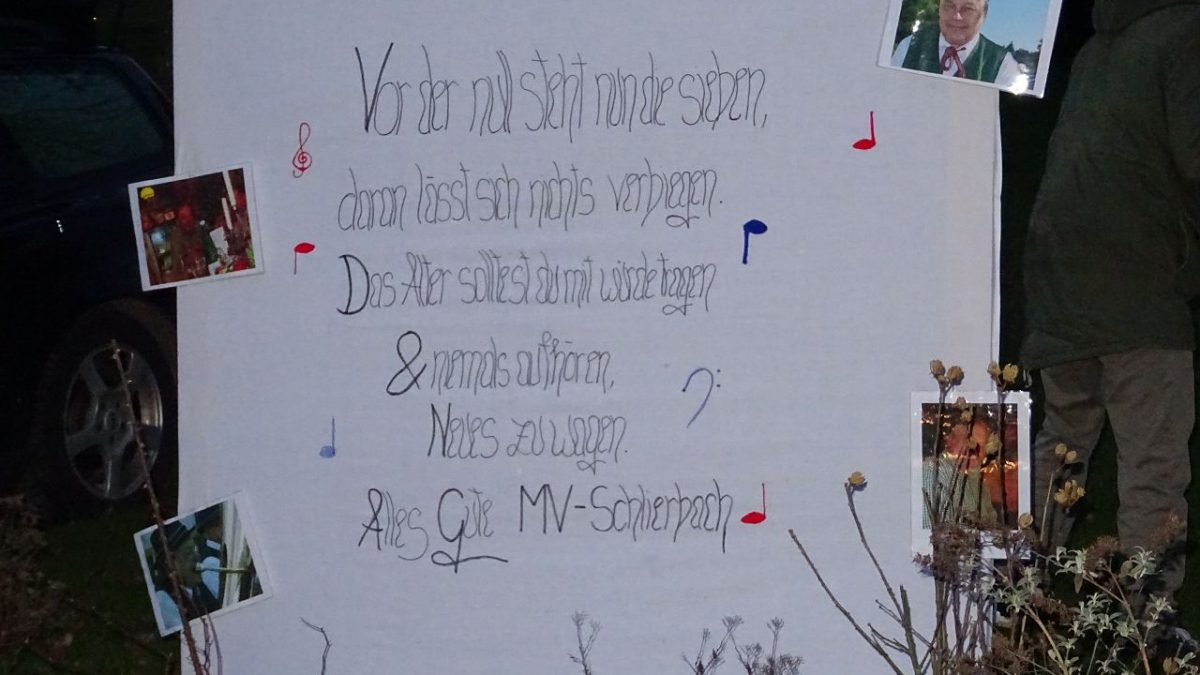 Vor der null steht nun die sieben,
daran lässt sich nichts verbiegen.
Das Alter solltest du mit würde tragen
& niemals aufhören,
Neues zu wagen.
Alles Gute MV-Schlierbach